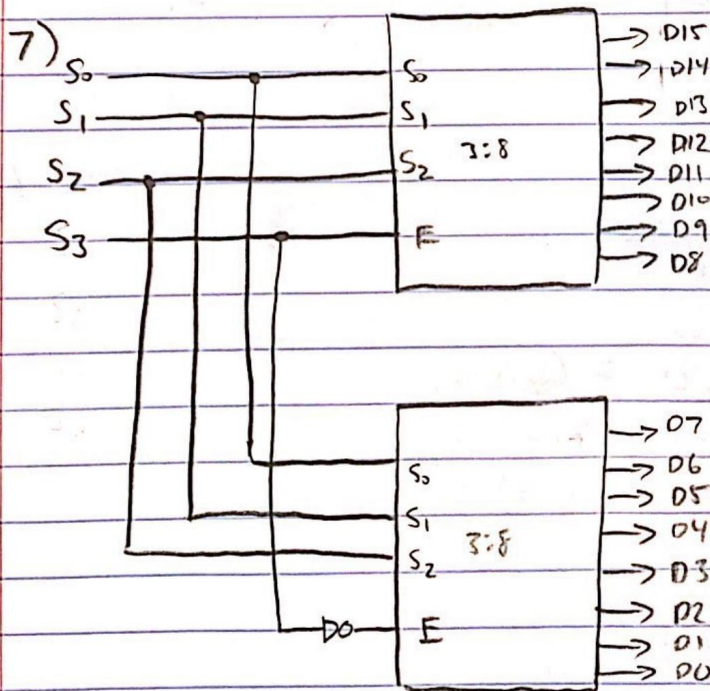 7)
S₀
S₁
S₂
S₃
S₀
S₁
S₂
E
3:8
D15
D14
D13
D12
D11
D10
D9
D8
S₀
S₁
S₂
E
3:8
D7
D6
D5
D4
D3
D2
D1
D0